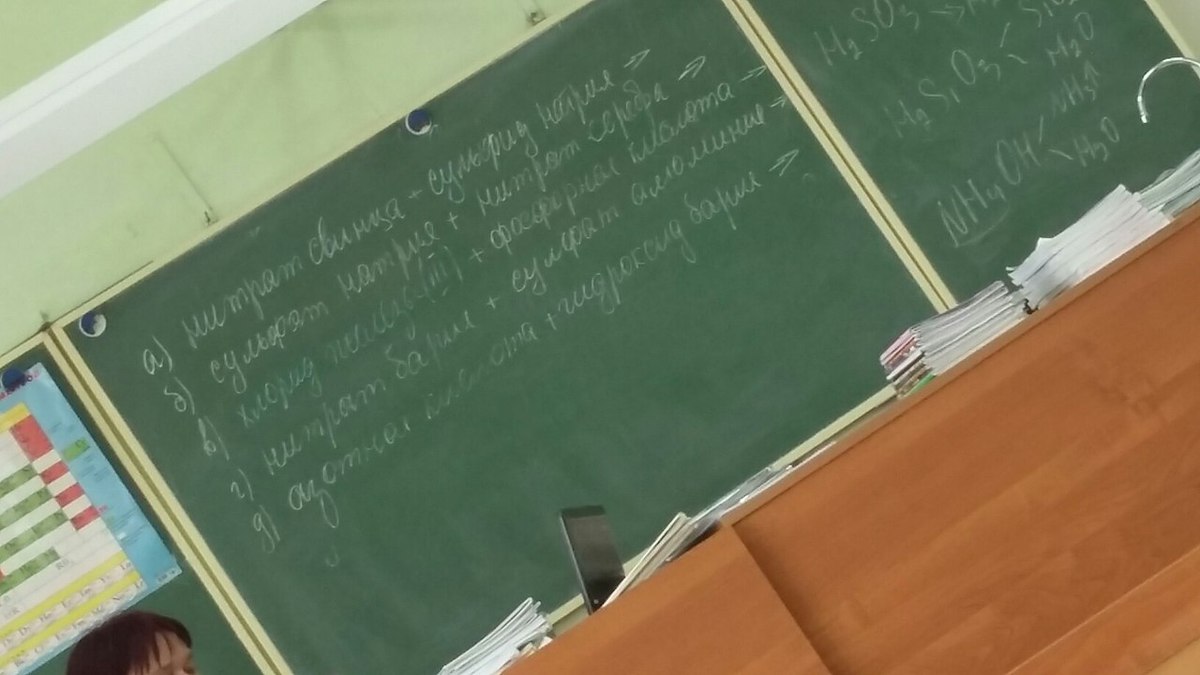 а) нитрат свинца + сульфид натрия →
б) сульфат натрия + нитрат серебра →
в) хлорид железа(III) + фосфорная кислота →
г) нитрат бария + сульфат алюминия →
д) азотная кислота + гидроксид бария →
H2SO3 →
H2SiO3
H2O
NH3↑
NH4OH
H2O